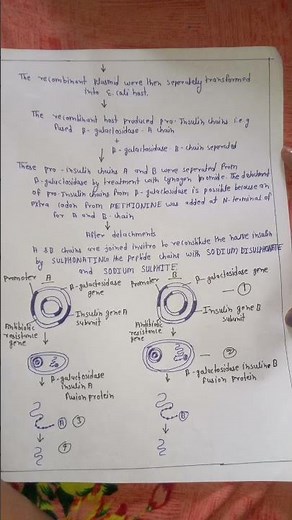 The recombinant plasmid were then seperately transformed
into E.coli host.
The recombinant host produced pro-Insulin chains i.e
fused β-galactosidase-A chain
+
β-galactosidase B-chain seperated
These pro-insulin chains A and B were seperated from
β-galactosidase by treatment with cynogen bromide. The detachment
of pro-Insulin chains from β-galactosidase is possible because an
extra codon from METHIONINE was added at N-terminal of
for A and B-chain
After detachments
A & B chains are joined invitro to reconstitute the naive insulin
by SULPHONATING the peptide chains with SODIUM DISULPHONATE
and SODIUM SULPHITE
Promoter A
β-galactosidase
gene
Insulin gene A
subunit
Antibiotic
resistance
gene
β-galactosidase
insulin A
fusion protein
A ③
④
Promoter B
β-galactosidase gene
①
Insulin gene B
subunit
Antibiotic
resistance
gene
②
β-galactosidase insulin B
fusion protein
B